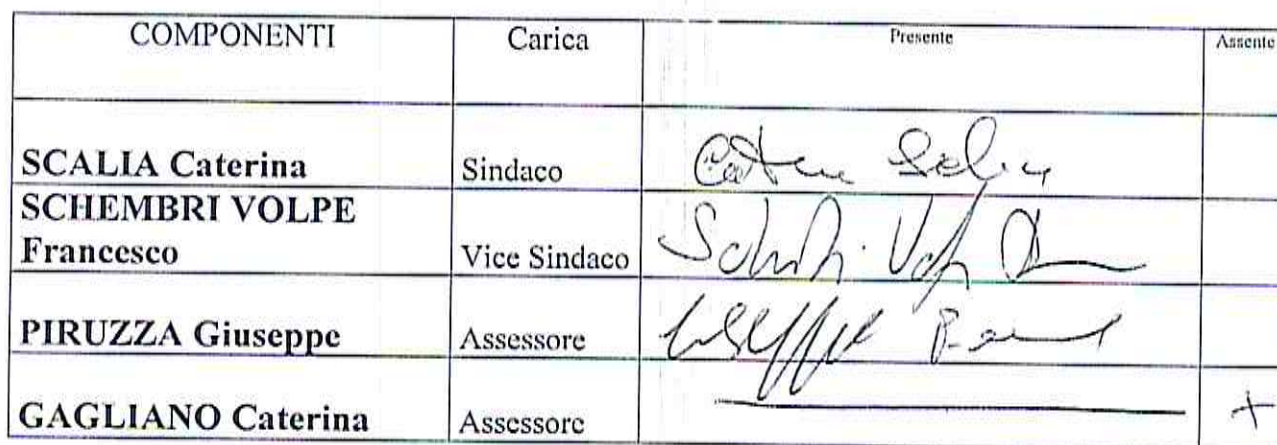 COMPONENTI Carica Presente Assente
SCALIA Caterina Sindaco
SCHEMBRI VOLPE
Francesco Vice Sindaco
PIRUZZA Giuseppe Assessore
GAGLIANO Caterina Assessore +